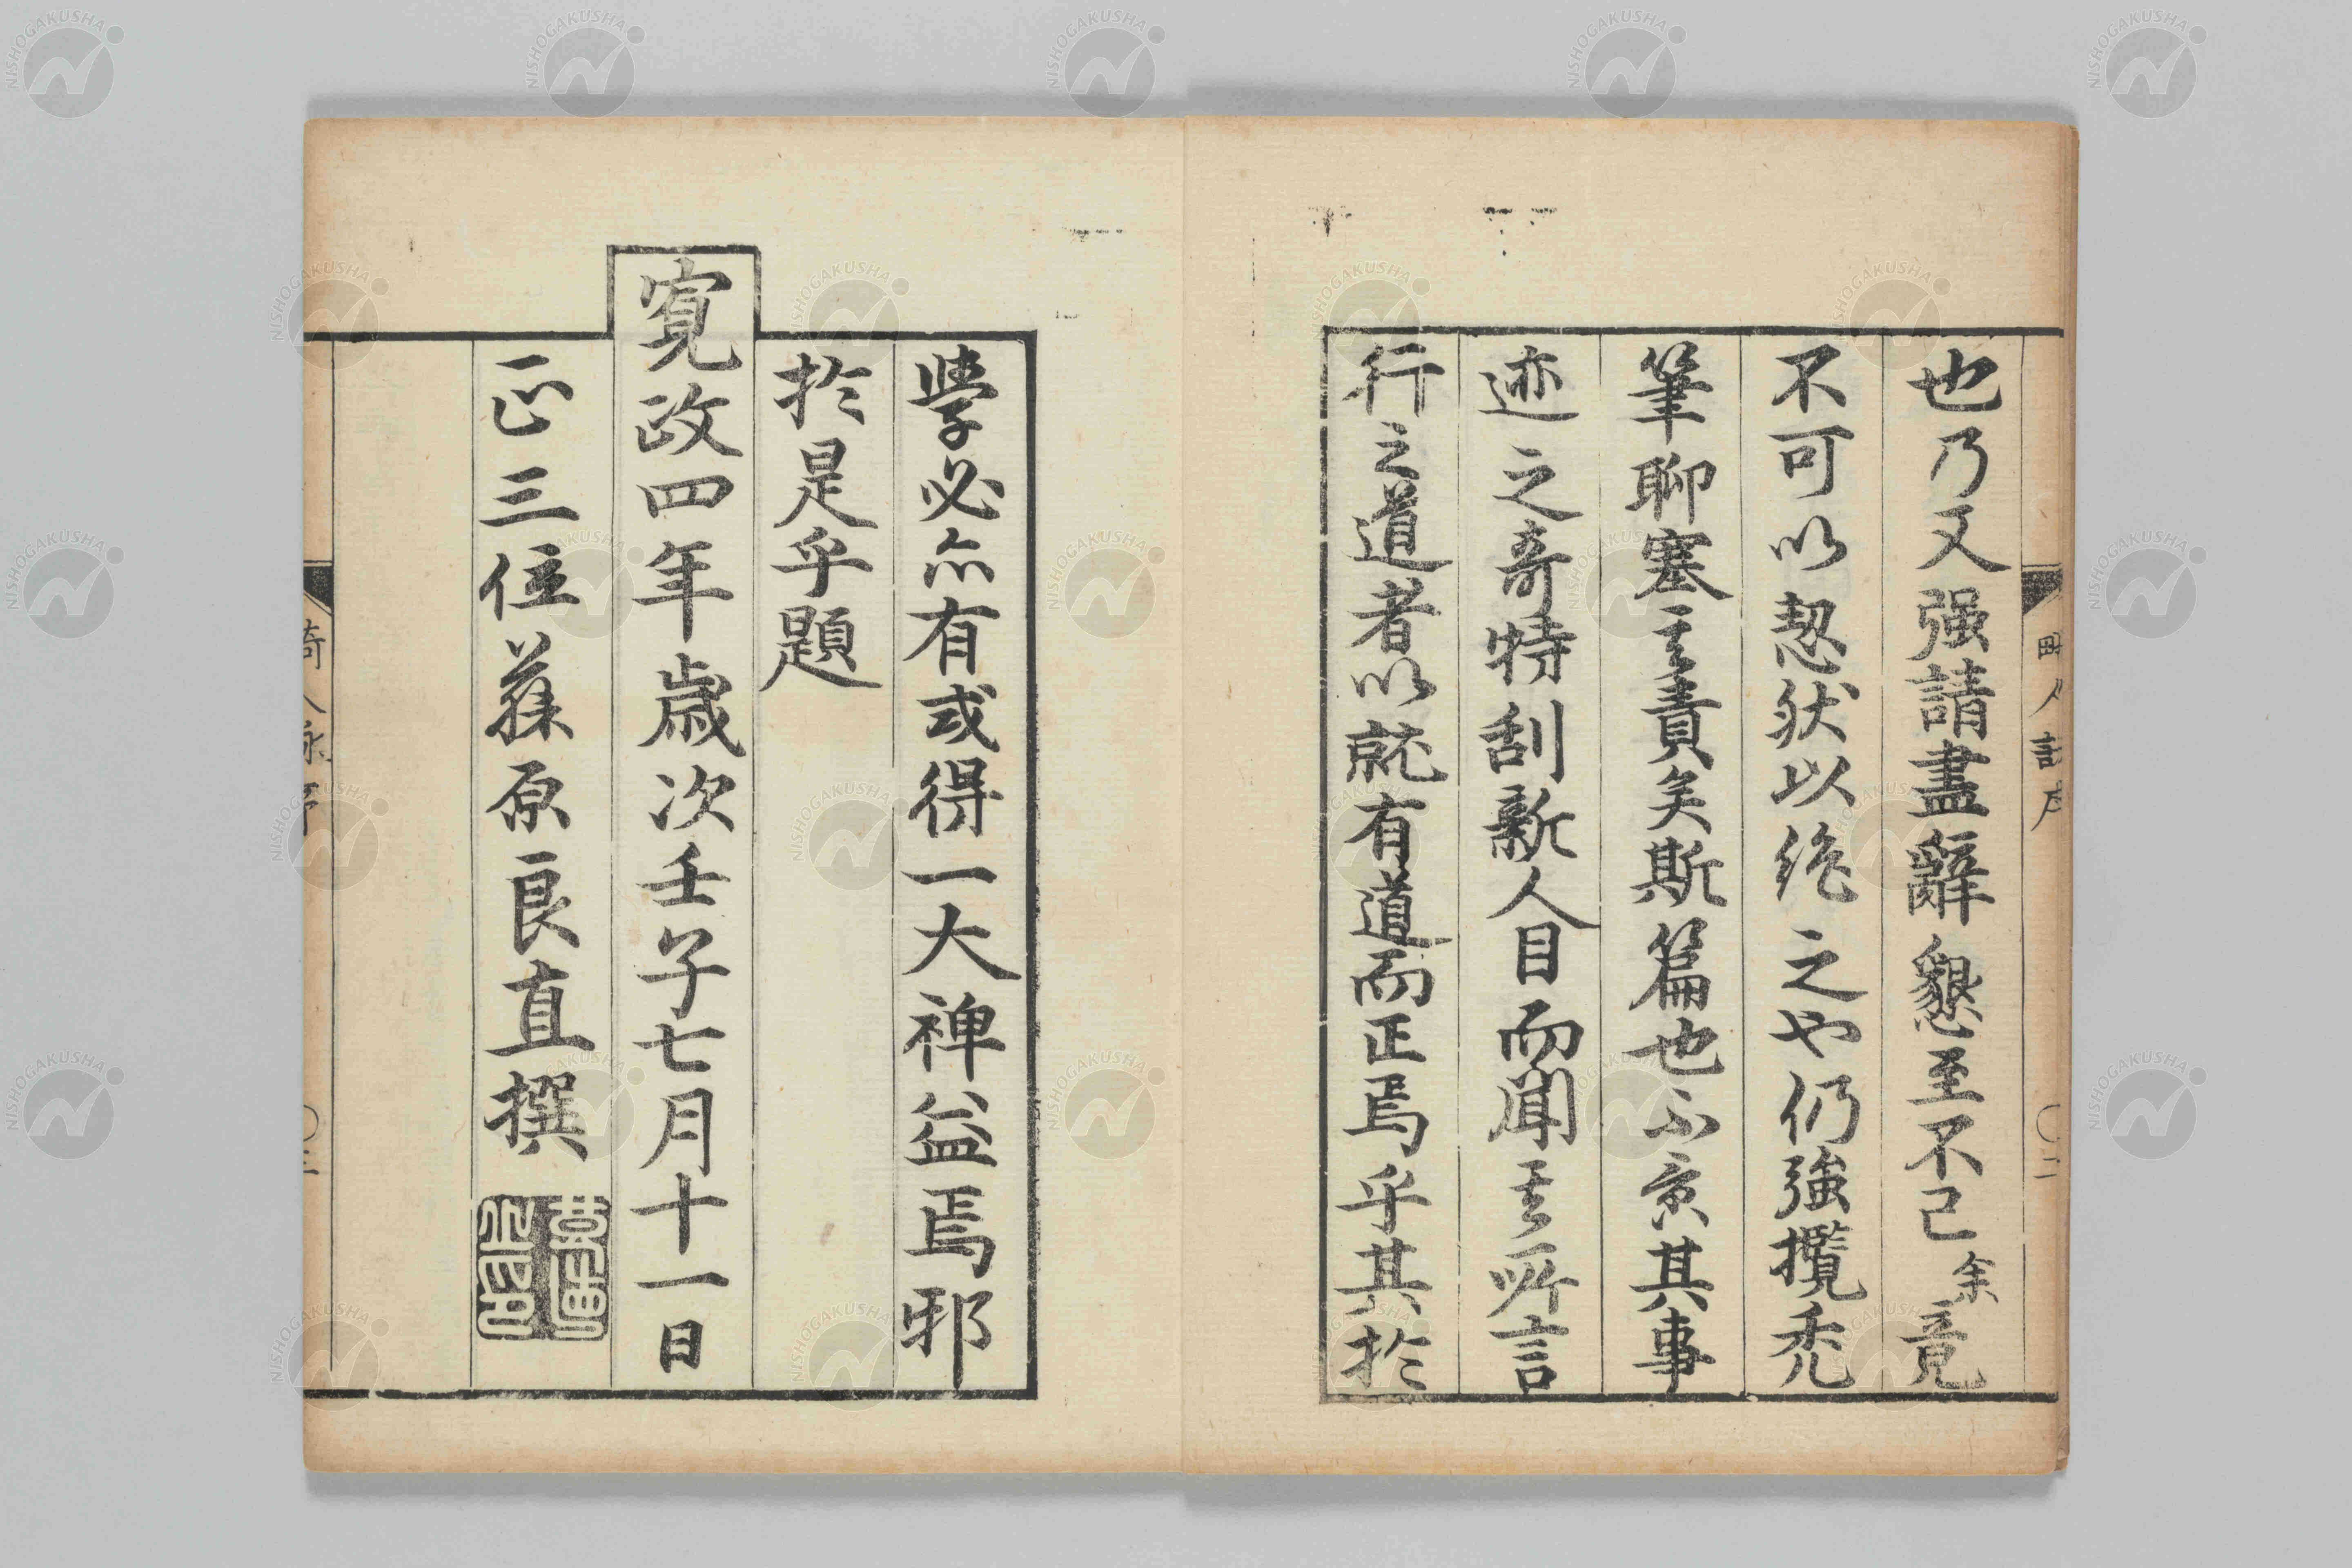 也乃又强請盡辭懇至不已余竟
不可以恝然以絶之也仍強攬禿
筆聊塞之責矣斯篇也不啻其事
迹之奇特刮新人目而聞之所言
行之道者以就有道而正焉乎其於
學必亦有或得一大裨益焉邪
於是乎題
寬政四年歲次壬子七月十一日
正三位藤原良直撰
NISHOGAKUSHA